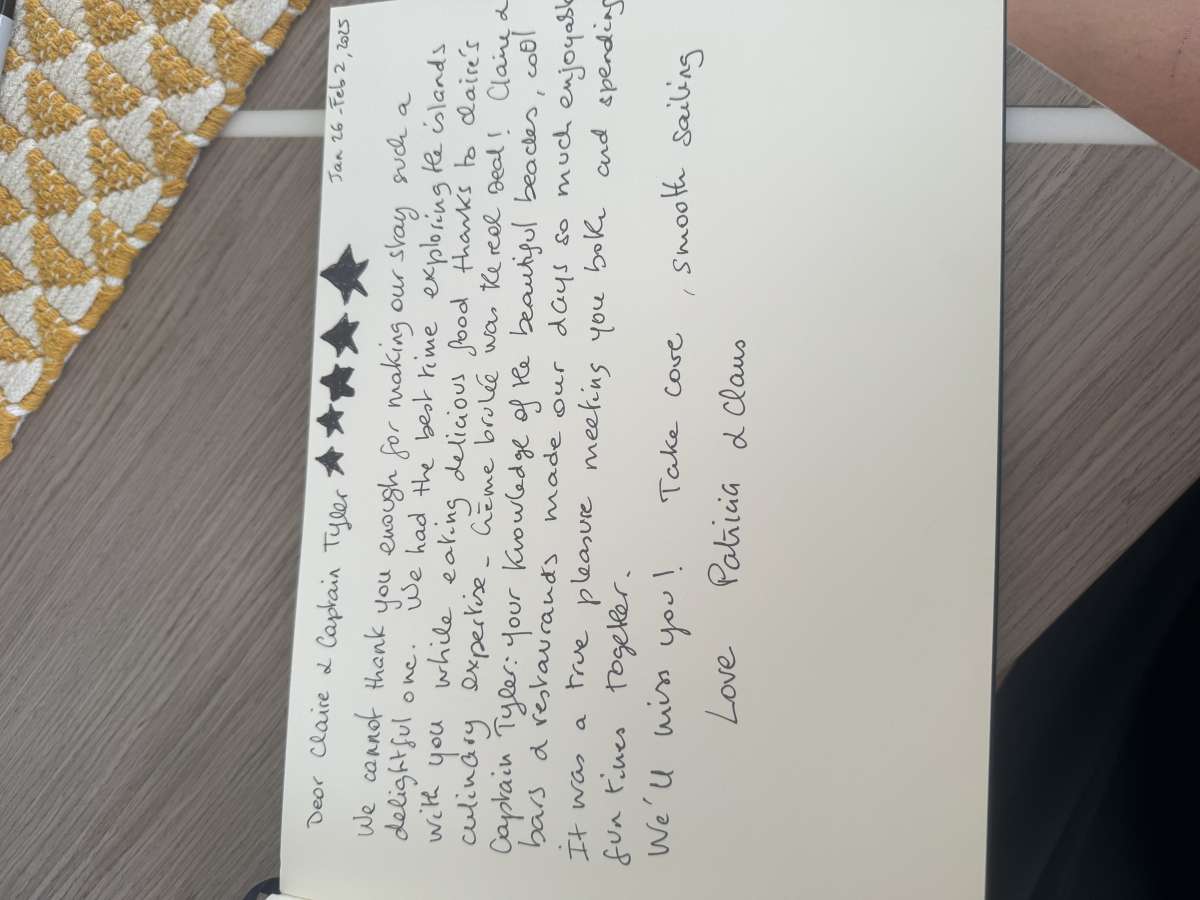 Jan 26 - Feb 2, 2025
Dear Claire & Captain Tyler ★★★★★
We cannot thank you enough for making our stay such a
delightful one. We had the best time exploring the islands
with you while eating delicious food thanks to Claire's
culinary expertise - Crème brulée was the real deal! Claire &
Captain Tyler: your knowledge of the beautiful beaches, cool
bars & restaurants made our days so much enjoyable
It was a true pleasure meeting you both and spending
fun times together.
We'll miss you! Take care, smooth sailing
Love Patricia & Claus